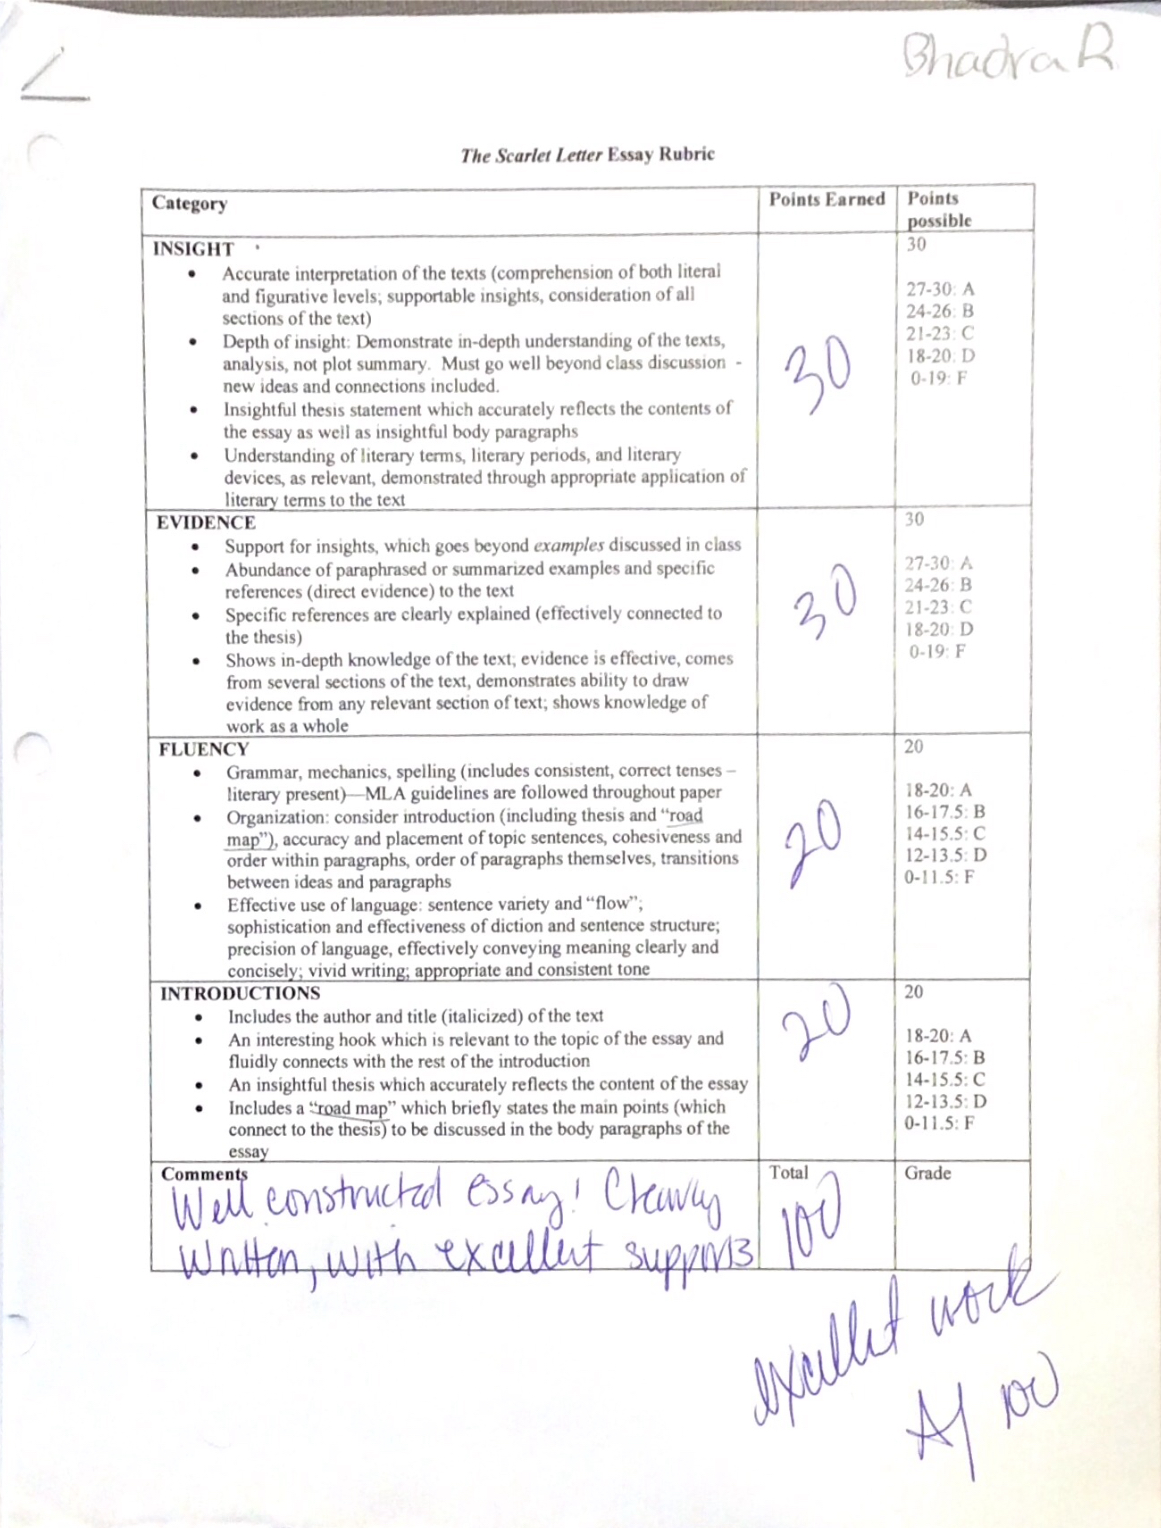 Bhadra R
The Scarlet Letter Essay Rubric
Category
Points Earned
Points
possible
INSIGHT
• Accurate interpretation of the texts (comprehension of both literal
and figurative levels; supportable insights, consideration of all
sections of the text)
• Depth of insight: Demonstrate in-depth understanding of the texts,
analysis, not plot summary. Must go well beyond class discussion -
new ideas and connections included.
• Insightful thesis statement which accurately reflects the contents of
the essay as well as insightful body paragraphs
• Understanding of literary terms, literary periods, and literary
devices, as relevant, demonstrated through appropriate application of
literary terms to the text
30
30
27-30: A
24-26: B
21-23: C
18-20: D
0-19: F
EVIDENCE
• Support for insights, which goes beyond examples discussed in class
• Abundance of paraphrased or summarized examples and specific
references (direct evidence) to the text
• Specific references are clearly explained (effectively connected to
the thesis)
• Shows in-depth knowledge of the text; evidence is effective, comes
from several sections of the text, demonstrates ability to draw
evidence from any relevant section of text; shows knowledge of
work as a whole
30
30
27-30: A
24-26: B
21-23: C
18-20: D
0-19: F
FLUENCY
• Grammar, mechanics, spelling (includes consistent, correct tenses –
literary present)—MLA guidelines are followed throughout paper
• Organization: consider introduction (including thesis and “road
map”), accuracy and placement of topic sentences, cohesiveness and
order within paragraphs, order of paragraphs themselves, transitions
between ideas and paragraphs
• Effective use of language: sentence variety and “flow”;
sophistication and effectiveness of diction and sentence structure;
precision of language, effectively conveying meaning clearly and
concisely; vivid writing; appropriate and consistent tone
20
20
18-20: A
16-17.5: B
14-15.5: C
12-13.5: D
0-11.5: F
INTRODUCTIONS
• Includes the author and title (italicized) of the text
• An interesting hook which is relevant to the topic of the essay and
fluidly connects with the rest of the introduction
• An insightful thesis which accurately reflects the content of the essay
• Includes a “road map” which briefly states the main points (which
connect to the thesis) to be discussed in the body paragraphs of the
essay
20
20
18-20: A
16-17.5: B
14-15.5: C
12-13.5: D
0-11.5: F
Comments
Well constructed essay! Clearly
written, with excellent supports
Total
100
Grade
excellent work
A/ 100